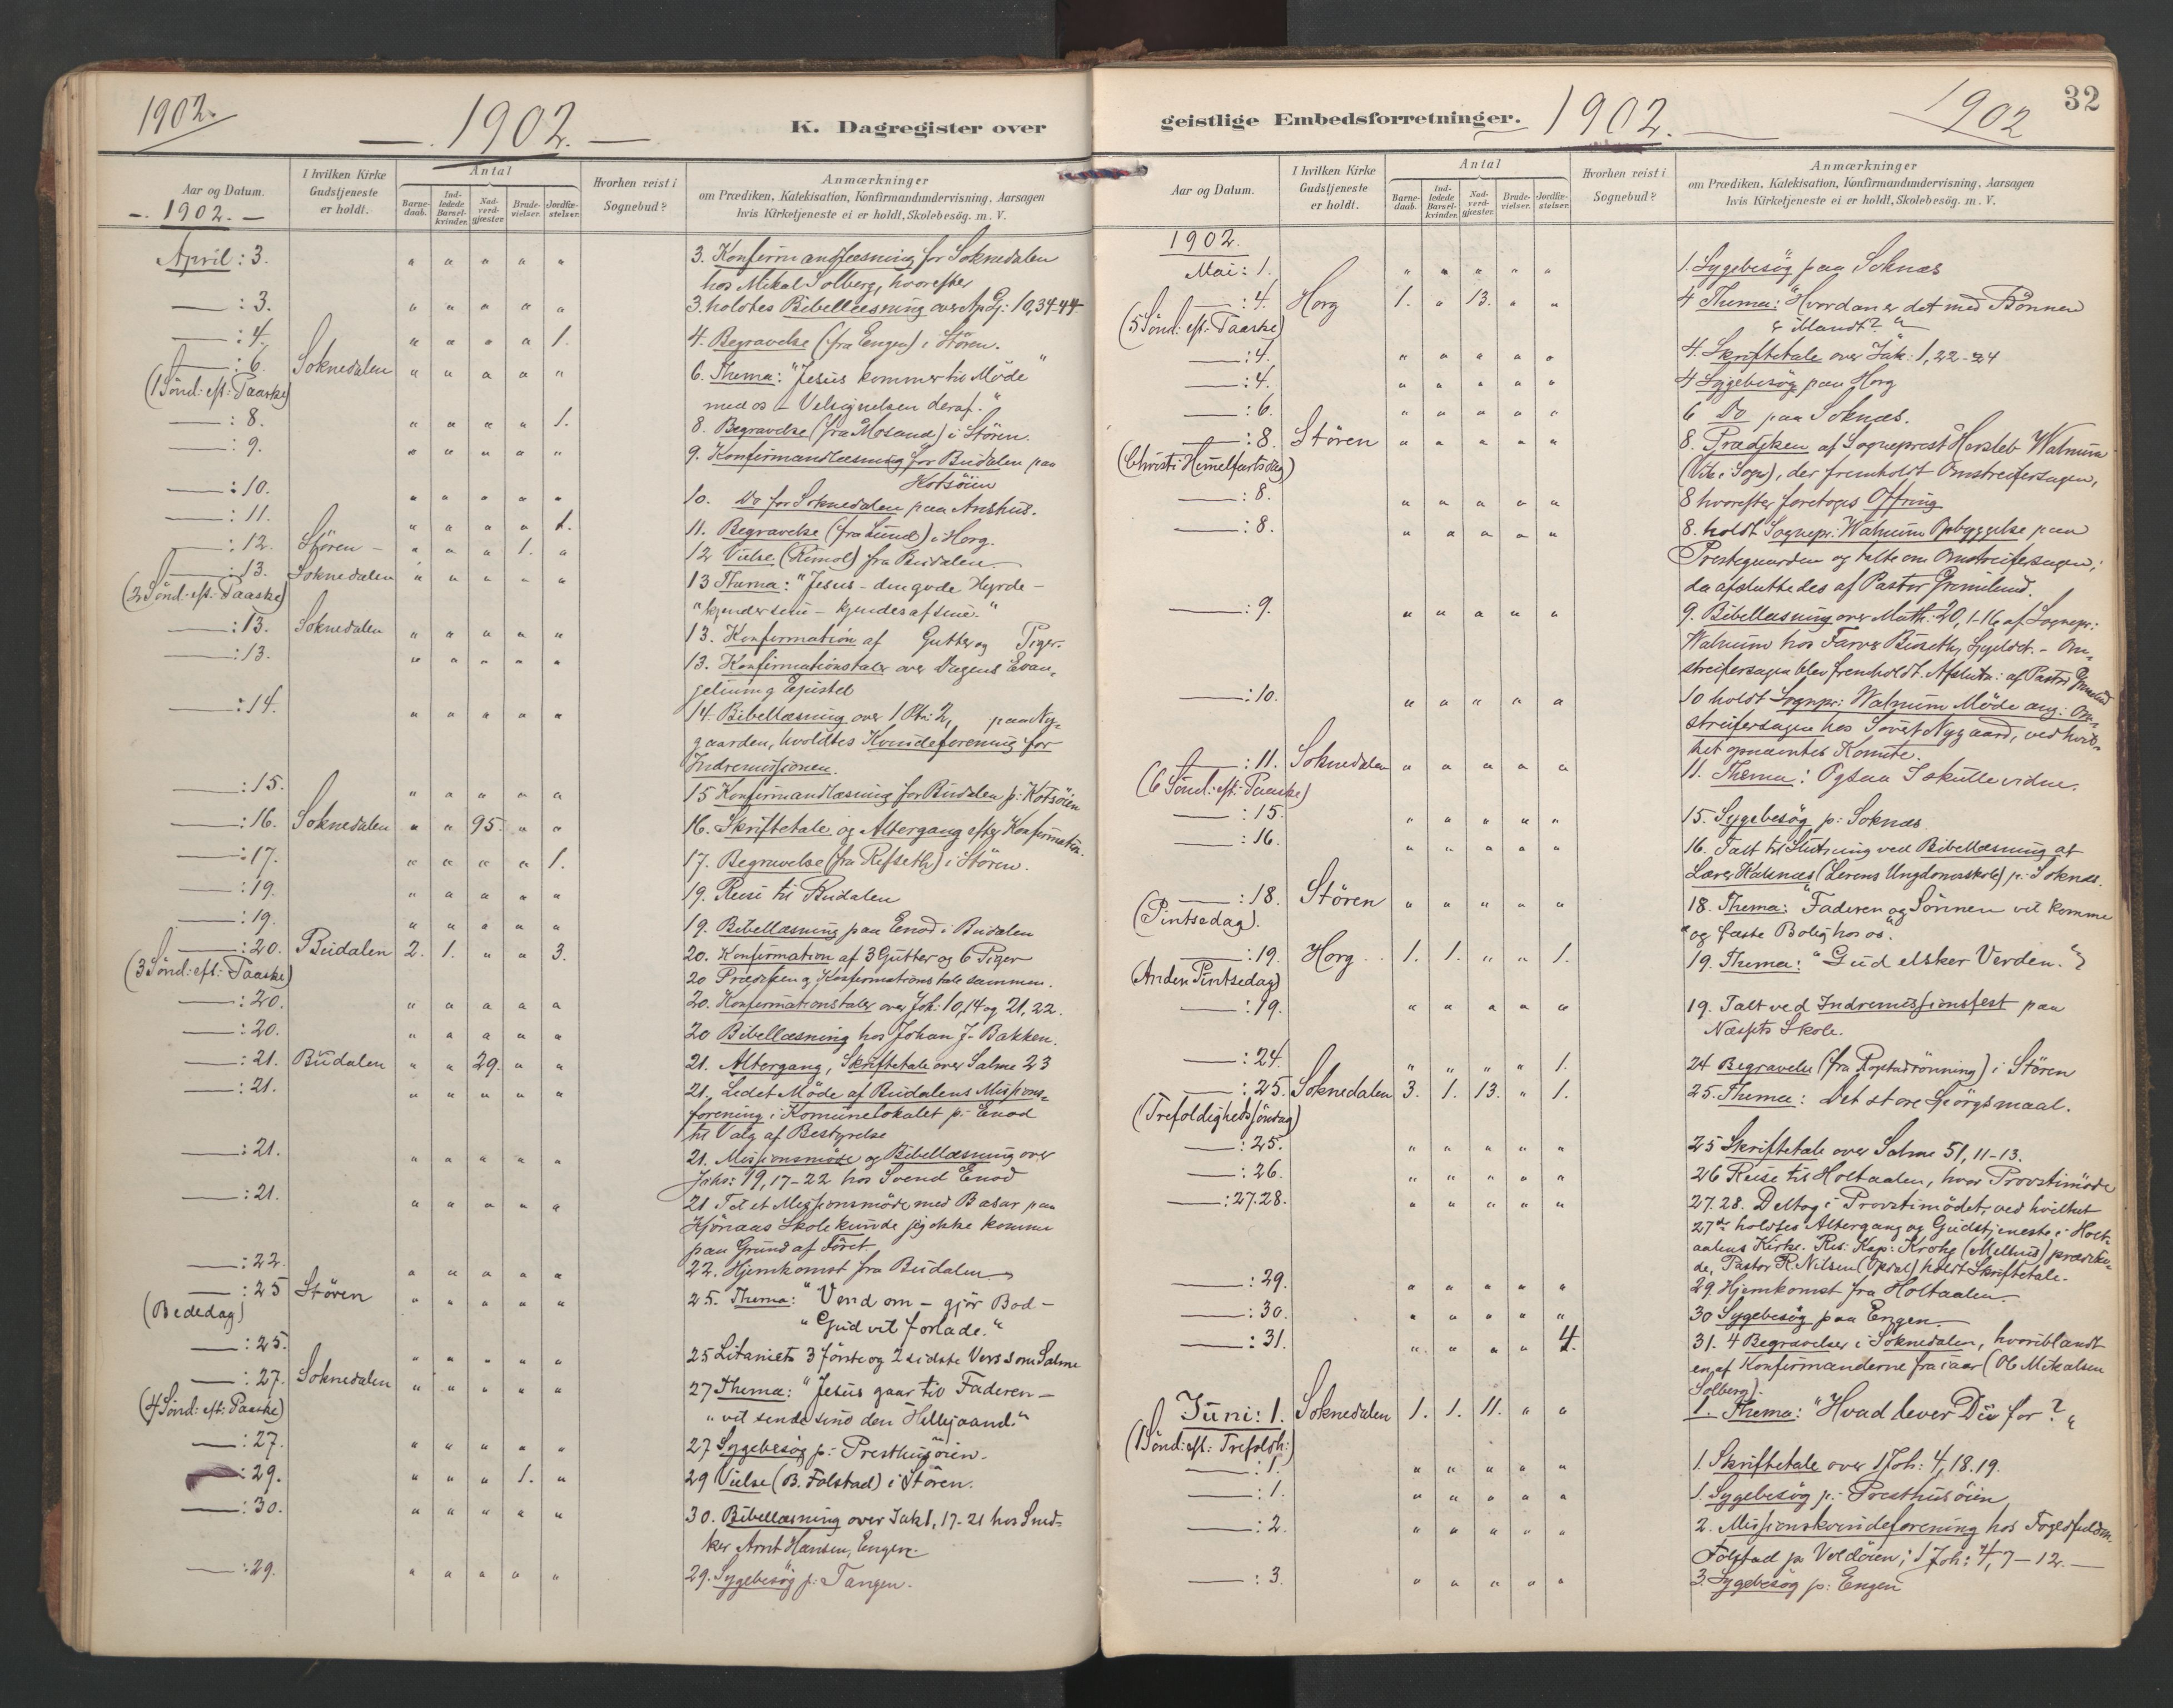 1902.
—. 1902. —
K. Dagregister over
Aar og Datum.
—. 1902. —
I hvilken Kirke
Gudstjeneste
er holdt.
Antal
Barne-
daab.
Ind-
ledede
Barsel-
kvinder.
Nad-
verd-
gjæster.
Brude-
vielser.
Jordfæ-
stelser.
Hvorhen reist i
Sognebud?
Anmærkninger
om Prædiken, Katekisation, Konfirmandundervisning, Aarsagen
hvis Kirketjeneste ei er holdt, Skolebesög. m. V.
April : 3. " " " " " 3. Konfirmandlæsning for Soknedalen
hos Mikal Solberg, hvorefter
— : 3. " " " " " 3. holdtes Bibellæsning over Ap.Gj: 10,34-44
— : 4. " " " " 1. 4. Begravelse (fra Engen) i Stören.
— : 6. Soknedalen " " " " " 6. Thema: "Jesus kommer til Möde"
(1 Sönd: eft: Paaske) med os – Velsignelsen deraf."
— : 8. " " " " 1. 8. Begravelse (fra Mosand) i Stören.
— : 9. " " " " " 9. Konfirmandlæsning for Budalen paa
Kotsöien
— : 10. " " " " " 10. Do for Soknedalen paa Anshus.
— : 11. " " " " 1. 11. Begravelse (fra Lund) i Horg.
— : 12. Stören – " " " 1. " 12 Vielse (Rimol) fra Budalen.
— : 13. Soknedalen " " " " " 13 Thema: "Jesus – den gode Hyrde –
(2 Sönd: eft: Paaske) "kjender sine – kjendes af sine."
— : 13. Soknedalen " " " " " 13. Konfirmation af Gutter og Piger.
— : 13. " " " " " 13. Konfirmationstaler over Dagens Evan-
gelium og Epistel
— : 14. " " " " " 14. Bibellæsning over 1 Ptr: 2, paa Ny-
gaarden, hvoldtes Kvindeforening for
Indremissionen.
— : 15. " " " " " 15 Konfirmandlæsning for Budalen p: Kotsöien
— : 16. Soknedalen " " 95. " " 16. Skriftetale og Altergang efter Konfirmation.
— : 17. " " " " 1. 17. Begravelse (fra Refseth) i Stören.
— : 19. " " " " " 19. Reise til Budalen
— : 19. " " " " " 19. Bibellæsning paa Enod i Budalen
— : 20. Budalen 2. 1. " " 3. 20. Konfirmation af 3 Gutter og 6 Piger
(3 Sönd: eft: Paaske) 20 Prædiken og Konfirmationstale sammen.
— : 20. " " " " " 20. Konfirmationstaler over Joh: 10,14 og 21,22.
— : 20. " " " " " 20 Bibellæsning hos Johan J. Bakken.
— : 21. Budalen " " 29. " " 21. Altergang, Skriftetale over Salme 23
— : 21. " " " " " 21. Ledet Möde af Budalens Missions-
forening i Komünelokalet p: Enod
til Valg af Bestyrelse
— : 21. " " " " " 21. Missionsmöde og Bibellæsning over
Johs: 19,17-22 hos Svend Enod
— : 21. " " " " " 21 Til et Missionsmöde med Basar paa
Skole kunde jeg ikke komme
paa Grund af Föret
— : 22. " " " " " 22. Hjemkomst fra Budalen
— : 25 Stören " " " " " 25. Thema: "Vend om – gjör Bod –
(Bededag) "Gud vil forlade."
— : 25. " " " " " 25 Litaniets 3 förste og 2 sidste Vers som Salme
— : 27. Soknedalen " " " " " 27 Thema: "Jesus gaar til Faderen –
(4 Sönd: eft: Paaske) "vil sende sine den Helligaand."
— : 27. " " " " " 27 Sygebesög p: Presthusöien.
— : 29. " " " 1. " 29 Vielse (B. Folstad) i Stören.
— : 30. " " " " " 30. Bibellæsning over Jak 1, 17-21 hos Sned-
ker Arnt Hansen, Engen.
— : 29. " " " " " 29. Sygebesög p: Tangen.
geistlige Embedsforretninger. 1902. —
1902
32
Aar og Datum.
I hvilken Kirke
Gudstjeneste
er holdt.
Antal
Barne-
daab.
Ind-
ledede
Barsel-
kvinder.
Nad-
verd-
gjæster.
Brude-
vielser.
Jordfæ-
stelser.
Hvorhen reist i
Sognebud?
Anmærkninger
om Prædiken, Katekisation, Konfirmandundervisning, Aarsagen
hvis Kirketjeneste ei er holdt, Skolebesög. m. V.
1902.
Mai : 1. " " " " " 1. Sygebesög paa Soknæs
— : 4. Horg 1. " 13. " " 4 Thema: "Hvordan er det med Bönnen
(5 Sönd: eft: Paaske) iblandt?"
— : 4. " " " " " 4. Skriftetale over Jak: 1, 22-24
— : 4. " " " " " 4 Sygebesög paa Horg
— : 6. " " " " " 6 Do paa Soknæs.
— : 8. Stören " " " " " 8. Prædiken af Sogneprest Harsleb Walnum
(Christi Himelfartsdag) (Vik i Sogn), der fremholdt Omstreifersagen,
— : 8. " " " " " 8 hvorefter foretoges Offring
— : 8. " " " " " 8. holdt Sognepr: Walnum Opbyggelse paa
Prestegaarden og talte om Omstreifersagen;
da afsluttedes af Pastor Grimelund.
— : 9. " " " " " 9. Bibellæsning over Math: 20, 1-16 af Sognepr:
Walnum hos Farver Buseth, . – Om-
streifersagen blev fremholdt. Afslutn: af Pastor Grimelund
— : 10. " " " " " 10 holdt Sognpr: Walnum Möde ang: Om-
streifersagen hos Sivert Nygaard, ved hvil-
ket opnævntes Komite.
— : 11. Soknedalen " " " " " 11. Thema: Ogsaa I skulle vidne.
(6 Sönd: eft: Paaske)
— : 15. " " " " " 15. Sygebesög p: Soknæs
— : 16. " " " " " 16. Talt til Slutning ved Bibellæsning af
Lærer Halsnæs (Lerens Ungdomsskole) p: Soknæs.
— : 18. Stören " " " " " 18. Thema: "Faderen og Sönnen vil komme
(Pintsedag). "og fæste Bolig hos os."
— : 19. Horg 1. 1. " " 1. 19. Thema: "Gud elsker Verden."
(Anden Pintsedag)
— : 19. " " " " " 19. Talt ved Indremissionsfest paa
Næssets Skole.
— : 24. " " " " 1. 24 Begravelse (fra Rognesrönning) i Stören
— : 25. Soknedalen 3. 1. 13. " 1. 25. Thema: Det store Spörgsmaal.
(Trefoldighedssöndag)
— : 25. " " " " " 25 Skriftetale over Salme 51, 11-13.
— : 26. " " " " " 26 Reise til Holtaalen, hvor Provstimöde
— : 27.28. " " " " " 27.28. Deltog i Provstimödet, ved hvilket
27de holdtes Altergang og Gudstjeneste i Holt-
aalens Kirke. Res: Kap: Krohg (Melhus) prædike-
de, Pastor R. Nilsen (Opdal) holdt Skriftetale.
— : 29. " " " " " 29. Hjemkomst fra Holtaalen
— : 30. " " " " " 30 Sygebesög paa Engen.
— : 31. " " " " 4. 31. 4 Begravelser i Soknedalen, hvoriblandt
en af Konfirmanderne fra iaar (Ole Mikalsen
Solberg).
Juni : 1. Soknedalen 1. 1. 11. " " 1. Thema: "Hvad lever Du for?"
(1 Sönd: eft: Trefoldh:)
— : 1. " " " " " 1. Skriftetale over 1 Joh: 4, 18.19.
— : 1. " " " " " 1. Sygebesög p: Presthusöien
— : 2. " " " " " 2. Missionskvindeforening hos Fogedfuldm.
Folstad p: Voldöien; 1 Joh: 4, 7–12. —
— : 3. " " " " " 3. Sygebesög p: Engen